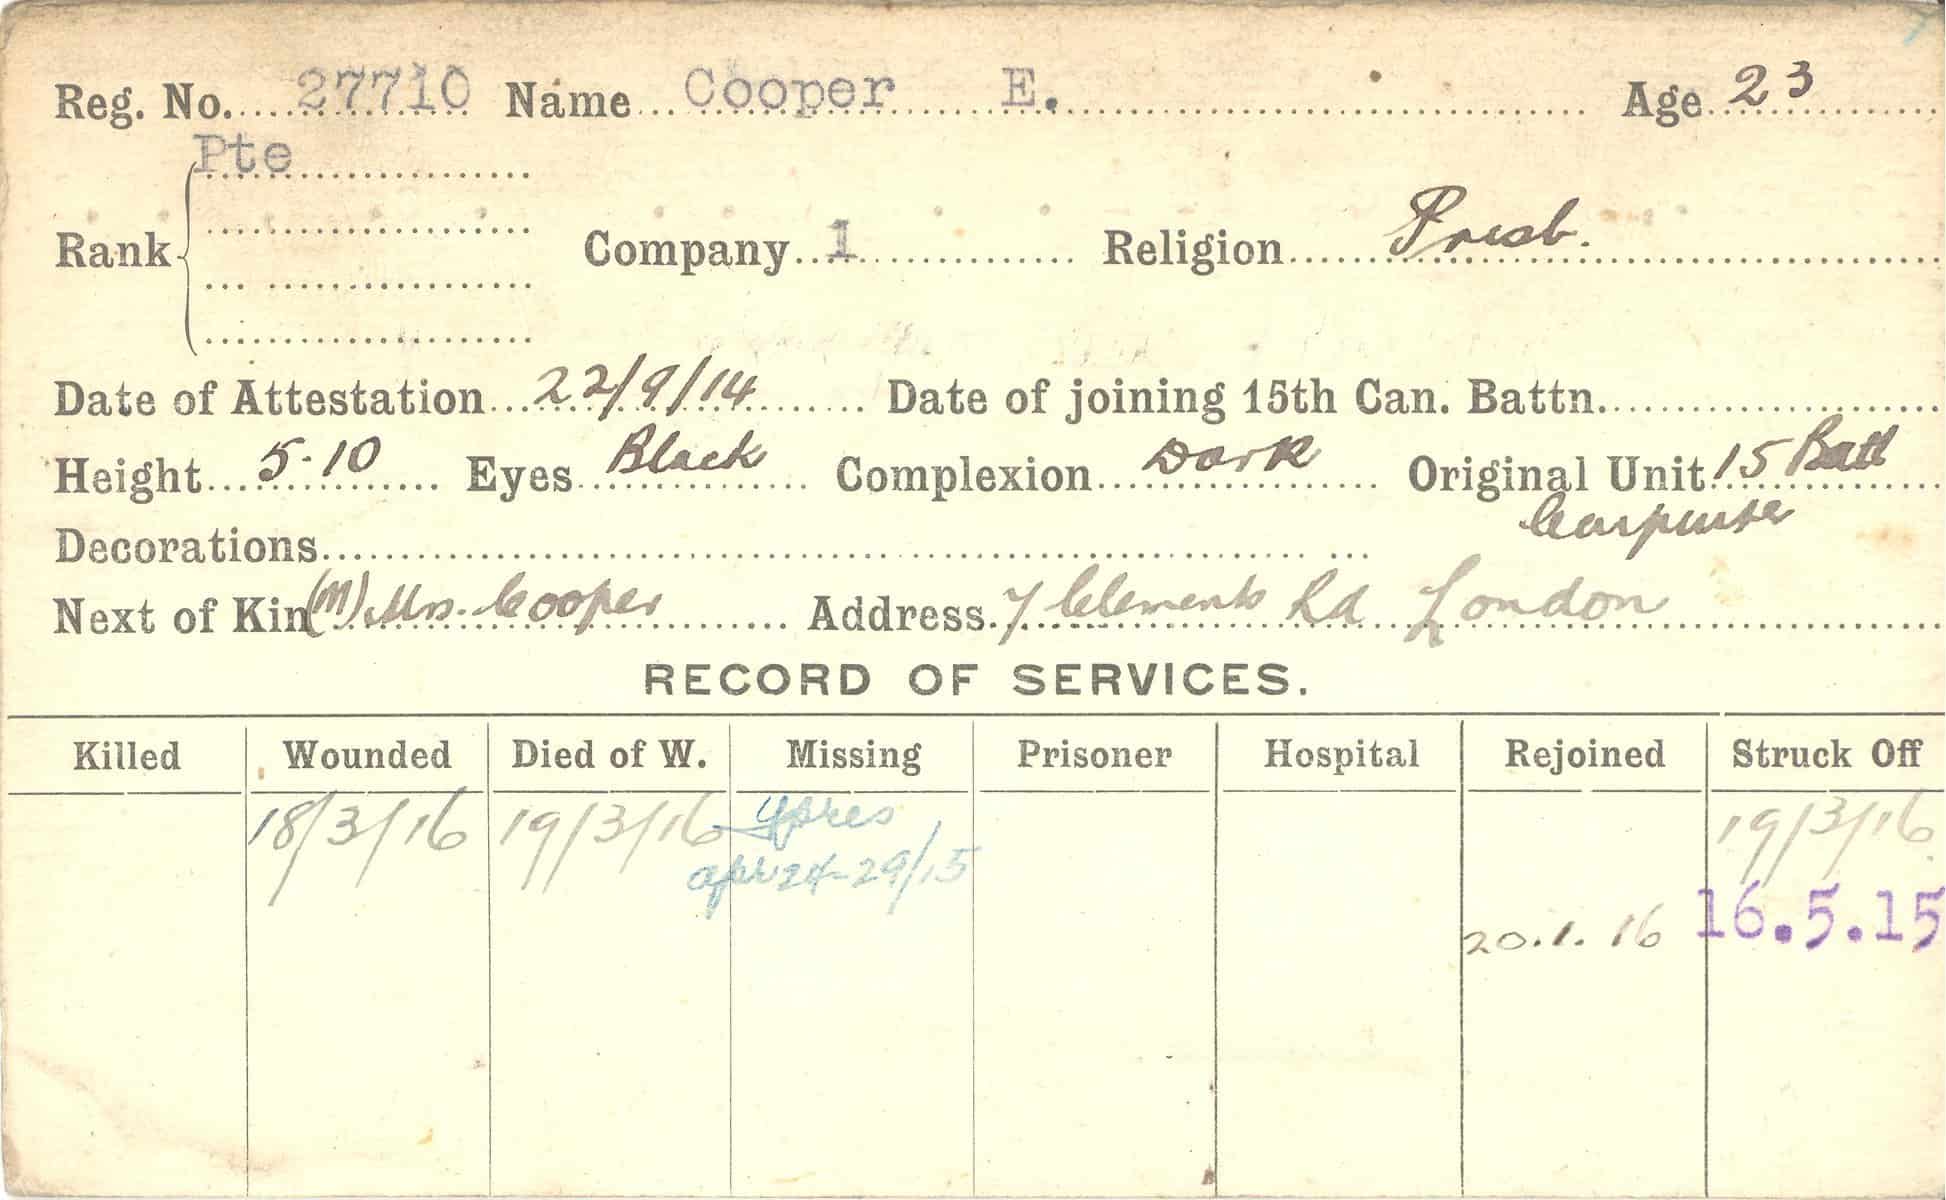 Reg. No. 27710 Name Cooper E. Age 23
Pte
Rank Company 1 Religion Presb.
Date of Attestation 22/9/14 Date of joining 15th Can. Battn.
Height 5-10 Eyes Black Complexion Dark Original Unit 15 Batt
Carpenter
Decorations
Next of Kin (M) Mrs. Cooper Address 7 Clements Rd London
RECORD OF SERVICES.
Killed Wounded Died of W. Missing Prisoner Hospital Rejoined Struck Off
18/3/16 19/3/16 Ypres 19/3/16
apr 24-29/15
20.1.16 16.5.15